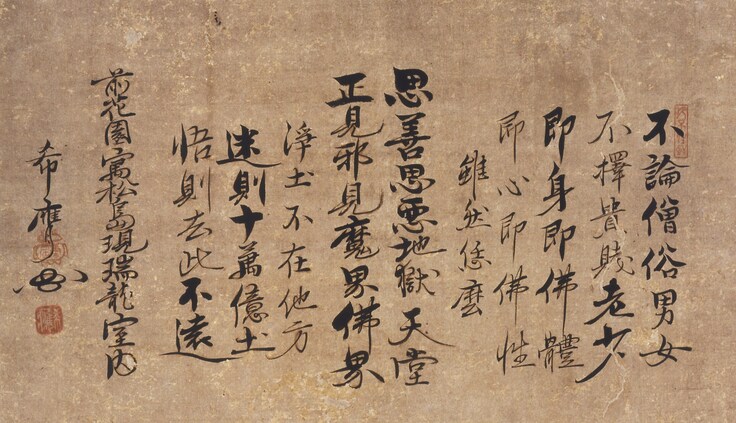 不論僧俗男女
不擇貴賤老少
即身即佛體
即心即佛性
雖然恁麼
思善思悪地獄天堂
正見邪見魔界佛界
淨土不在他方
迷則十萬億土
悟則去此不遠
前花園寓松島現瑞龍室内
希膺